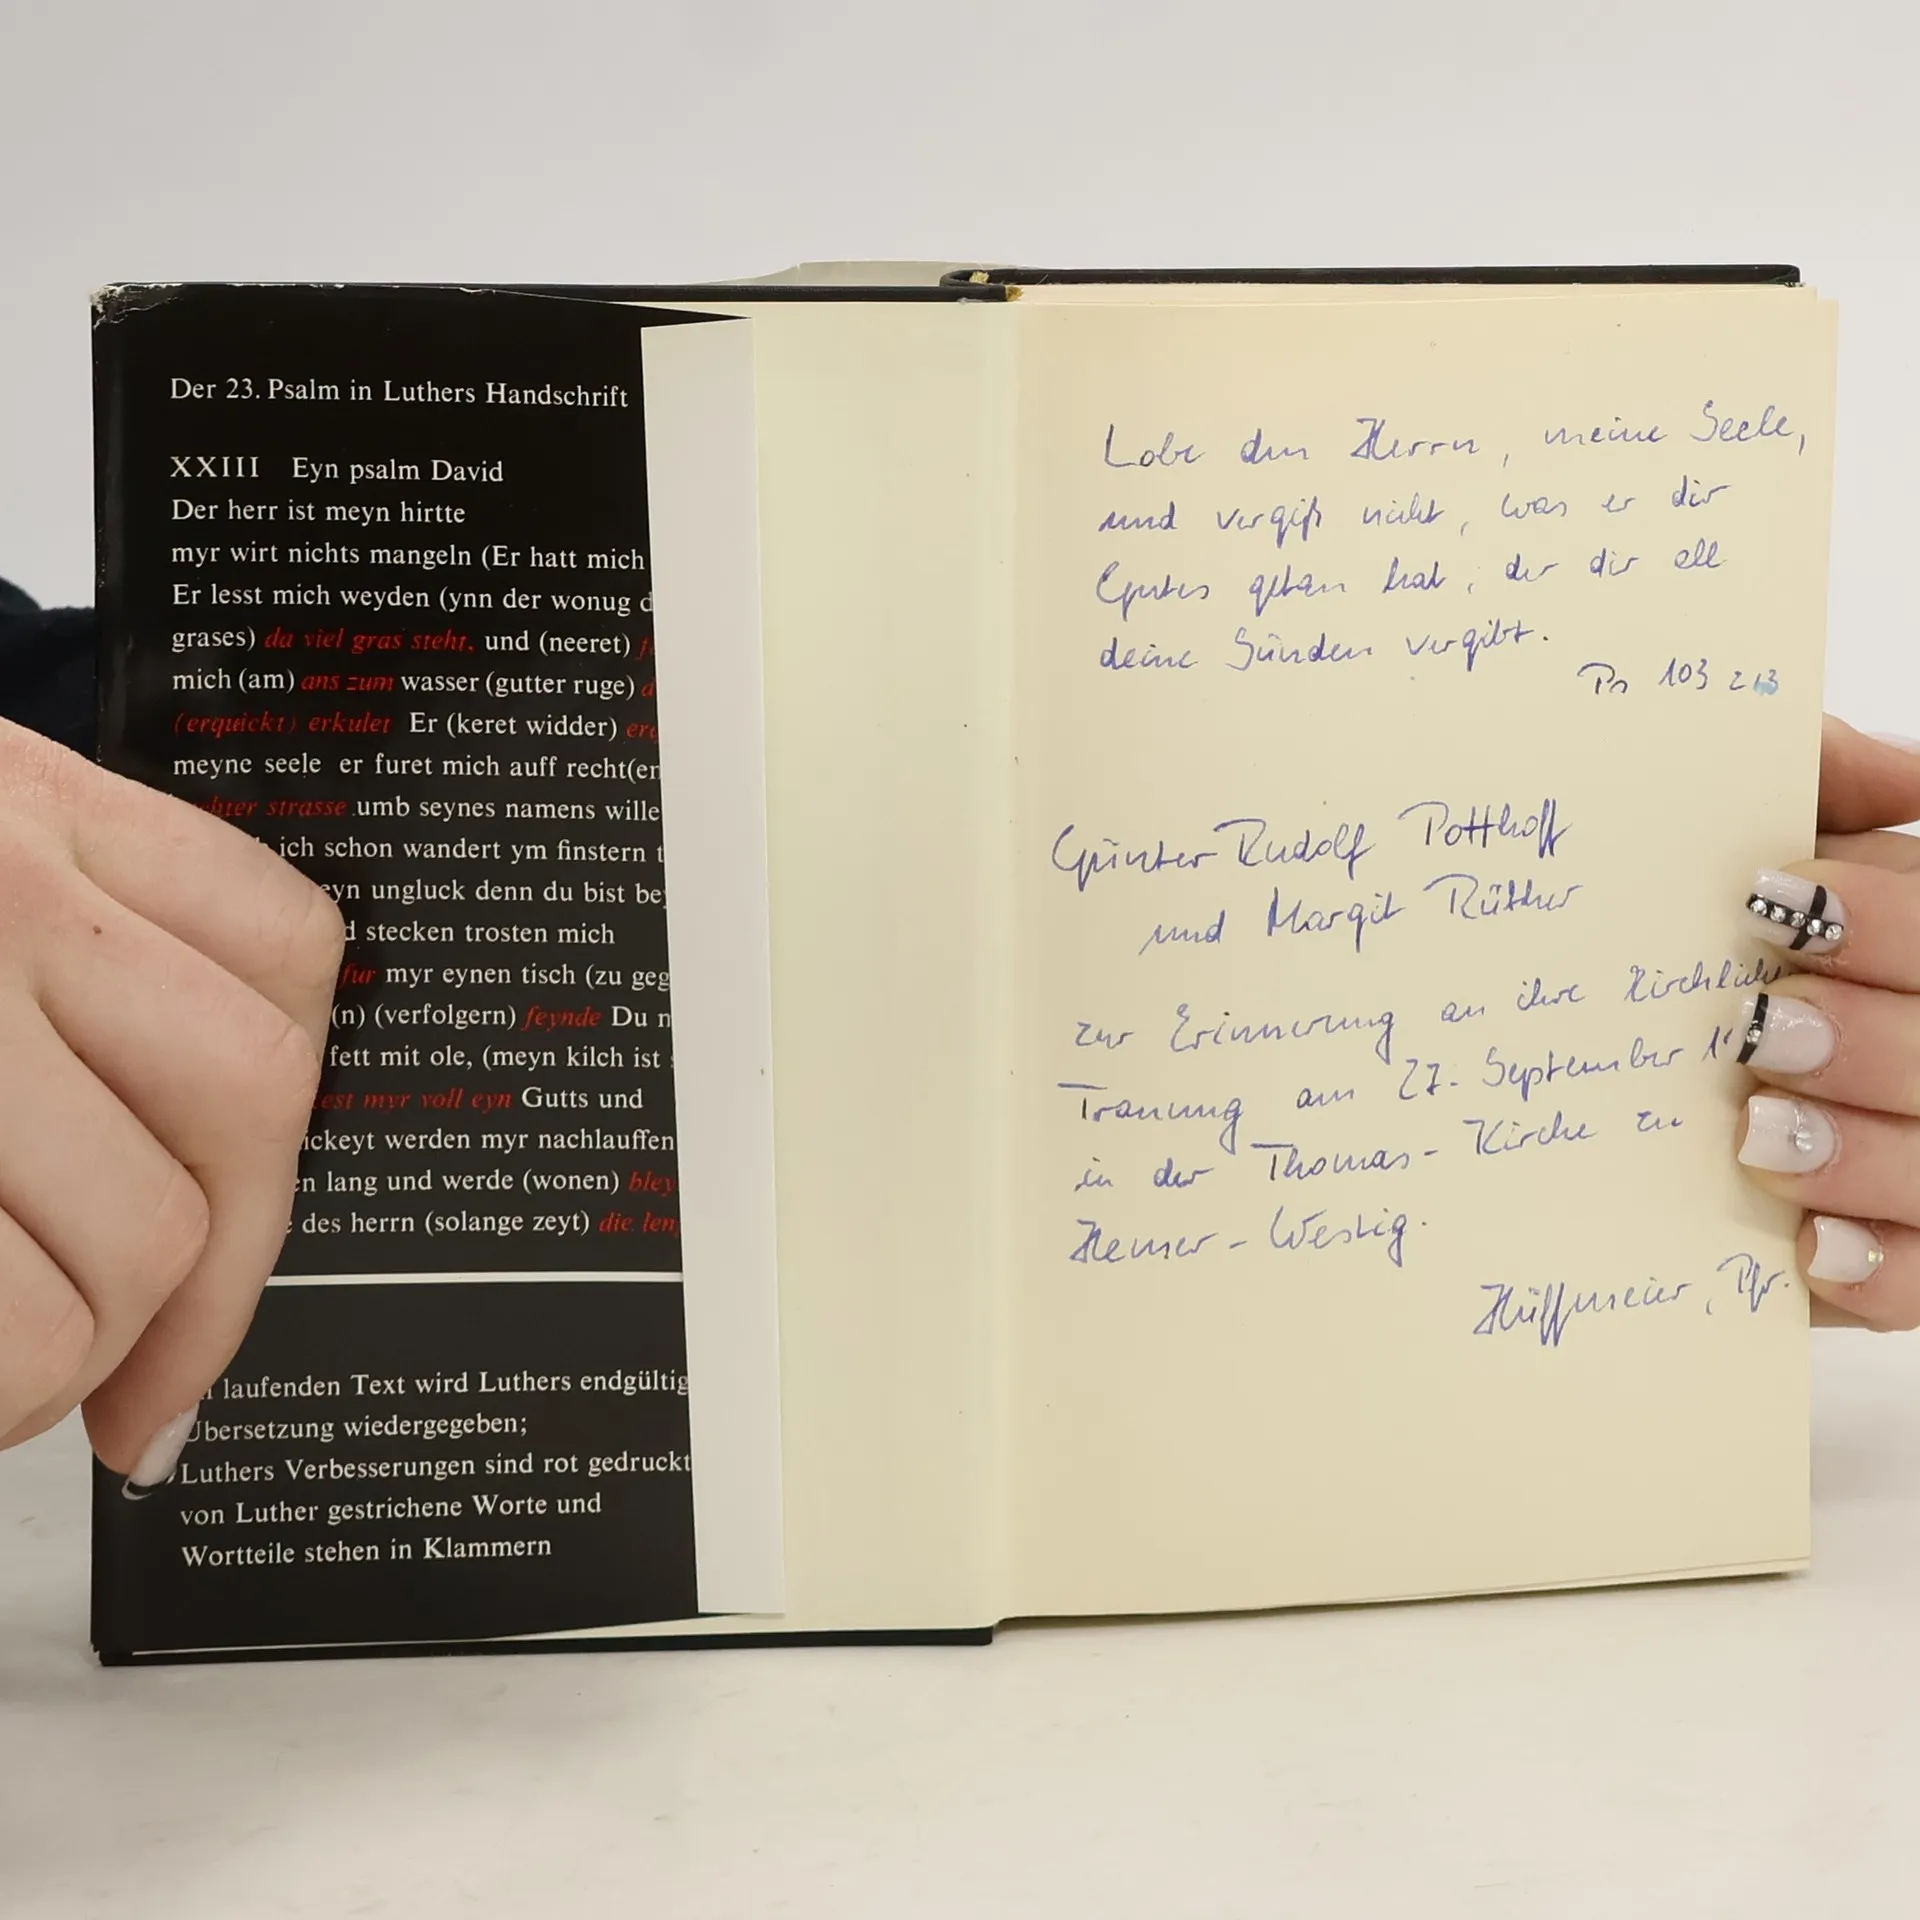 Der 23. Psalm in Luthers Handschrift
XXIII Eyn psalm David
Der herr ist meyn hirtte
myr wirt nichts mangeln (Er hatt mich
Er lesst mich weyden (ynn der wonug d
grases) da viel gras steht, und (neeret)
mich (am) ans zum wasser (gutter ruge) d
(erquickt) erkulet Er (keret widder) erq
meyne seele er furet mich auff recht(en
chter strasse .umb seynes namens wille
ich schon wandert ym finstern t
eyn ungluck denn du bist bey
d stecken trosten mich
fur myr eynen tisch (zu geg
(n) (verfolgern) feynde Du
fett mit ole, (meyn kilch ist
est myr voll eyn Gutts und
ickeyt werden myr nachlauffen
en lang und werde (wonen) bley
des herrn (solange zeyt) die len
laufenden Text wird Luthers endgültig
Übersetzung wiedergegeben;
Luthers Verbesserungen sind rot gedruckt
von Luther gestrichene Worte und
Wortteile stehen in Klammern
Lobe den Herrn, meine Seele,
und vergiß nicht, was er dir
Gutes getan hat, der dir all
deine Sünden vergibt.
Ps 103 2+3
Günter Rudolf Potthoff
und Margit Rüther
zur Erinnerung an ihre Kirchliche
Trauung am 27. September 1
in der Thomas-Kirche zu
Hemer-Westig.
Hüffmeier, Pfr.